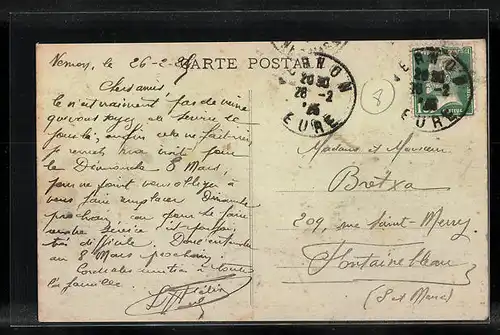 Vernon, le 26-2-25
CARTE POSTALE
VERNON
20 30
26 -2
25
EURE
VERNON
20 30
26 -2
25
EURE
8
Chers amis
Ce n'est vraiment pas de veine
que vous soyez de service ce
jour là. enfin cela ne fait rien
je remets ma visite pour
le Dimanche 8 Mars,
pour ne point vous obliger à
vous faire remplacer Dimanche
prochain, car pour le faire
votre service est parfois
très difficile. Donc entendu
au 8 Mars prochain.
Cordiales amitiés à toute
la famille.
Madame et Monsieur
Bretxa
209, rue Saint-Merry
Fontainebleau
(S et Marne)